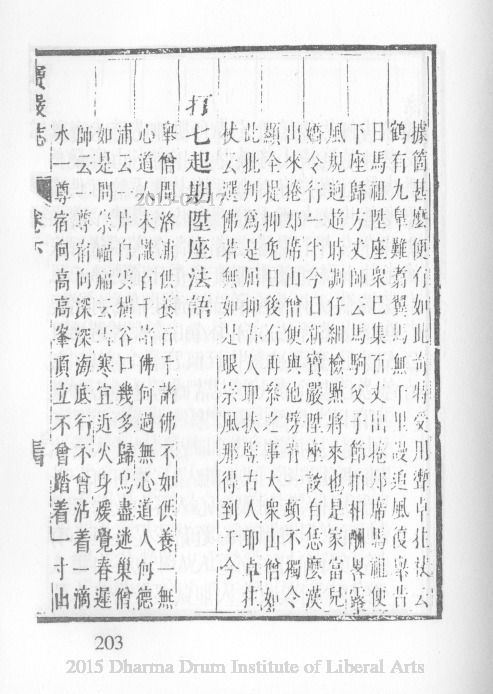 據箇甚麼便有如此奇特受用遂卓拄杖云
鶴有九皐難翥翼馬無千里謾追風復舉昔
日馬祖陞座衆已集百丈出捲却席馬祖便
下座歸方丈師云馬駒父子節拍相酬畧露
風規逈超時調仔細檢點將來也是家富兒
嬌令行一半今日新寶嚴陞座設有恁麼漢
出來捲却席山僧便與他劈脊一頓不獨令
顯全提抑免日後有再參之事大衆山僧如
此批判爲是屈抑古人耶扶竪古人耶卓拄
杖云選佛若無如是眼宗風那得到于今
打七起期陞座法語
舉僧問洛浦供養百千諸佛不如供養一無
心道人未識百千諸佛何過無心道人何德
浦云一片白雲橫谷口幾多歸鳥盡迷巢僧
如是問崇福福云雪寒宜近火身煖覺春遲
師云一尊宿向深深海底行不曾沾着一滴
水一尊宿向高高峯頂立不曾踏着一寸山
寶嚴志 卷下
2015-03-17
203
2015 Dharma Drum Institute of Liberal Arts